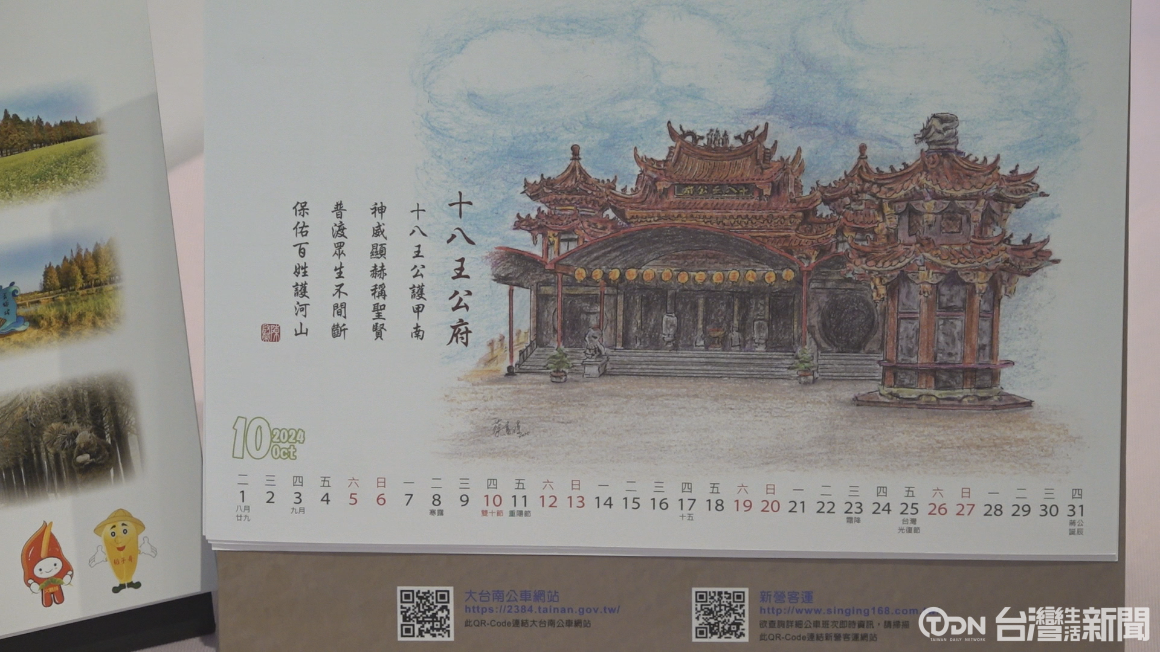 十八王公府
十八王公護甲南
神威顯赫稱聖賢
普渡眾生不間斷
保佑百姓護河山
10
2024
Oct
二 三 四 五 六 日 一 二 三 四 五 六 日 一 二 三 四 五 六 日 一 二 三 四 五 六 日 一 二 三 四
1 2 3 4 5 6 7 8 9 10 11 12 13 14 15 16 17 18 19 20 21 22 23 24 25 26 27 28 29 30 31
八月 九月 寒露 雙十節 重陽節 十五 霜降 台灣 蔣公
廿九 光復節 誕辰
大台南公車網站
https://2384.tainan.gov.tw/
此QR-Code連結大台南公車網站
新營客運
http://www.singing168.com
欲查詢詳細公車班次即時資訊，請掃描
此QR-Code連結新營客運網站
TDN 台灣生活新聞
TAIWAN DAILY NETWORK